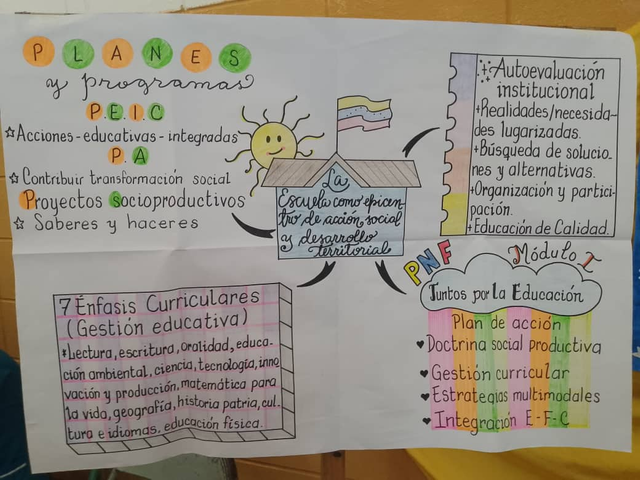 PLANES
y programas
P.E.I.C
☆Acciones-educativas-integradas
P.A
☆ Contribuir transformación social
Proyectos Socioproductivos
☆ Saberes y haceres
La
Escuela como epicen-
tro de acción social
y desarrollo
territorial
Autoevaluación
institucional
+Realidades/necesida-
des lugarizadas.
+Búsqueda de solucio-
nes y alternativas.
+Organización y partici-
pación.
+Educación de Calidad.
7 Énfasis Curriculares
(Gestión educativa)
*Lectura, escritura, oralidad, educa-
ción ambiental, ciencia, tecnología, inno
vación y producción, matemática para
la vida, geografía, historia patria, cul
tura e idiomas, educación física.
PNF Módulo I
Juntos por la Educación
Plan de acción
♥Doctrina social productiva
♥Gestión curricular
♥Estrategias multimodales
♥Integración E-F-C